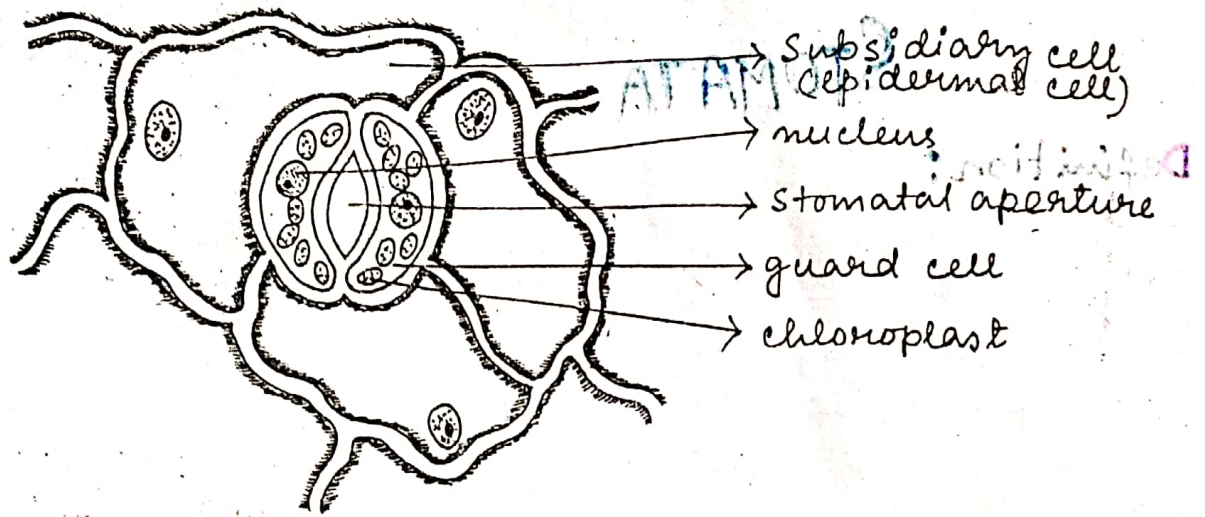 Subsidiary cell
(epidermal cell)
nucleus
stomatal aperture
guard cell
chloroplast
STOMATA
Definition: